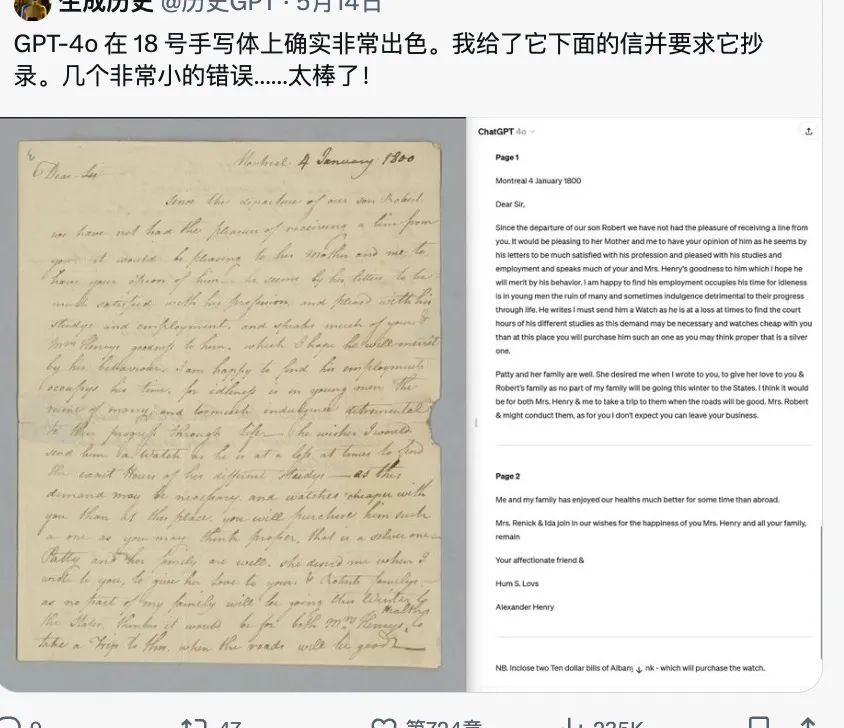 生成历史 @历史GPT · 5月14日
GPT-4o 在 18 号手写体上确实非常出色。我给了它下面的信并要求它抄
录。几个非常小的错误......太棒了！
Montreal 4 January 1800
Dear Sir
Since the departure of our son Robert
we have not had the pleasure of receiving a line from
you it would be pleasing to his Mother and me to
have your opinion of him he seems by his letters to be
much satisfied with his profession, and pleased with his
studys and employment, and speaks much of your &
Mrs Henrys goodness to him, which I hope he will merit
by his behaviour. I am happy to find his employment
occupys his time, for idleness is in young men the
ruine of many, and too much indulgence detremental
to their progress through life he wishes I would
send him a Watch as he is at a loss at times to find
the exact Hours of his different studys as this
demand may be necessary and watches cheaper with
you than at this place, you will purchase him such
a one as you may think proper, that is a silver one
Patty and her family are well. she desired me when I
wrote to you, to give her love to you & Roberts familys
as no part of my family will be going this Winter to
the States, thinks it would be for both Mrs Henrys
take a Trip to them when the roads will be good
ChatGPT 4o
Page 1
Montreal 4 January 1800
Dear Sir,
Since the departure of our son Robert we have not had the pleasure of receiving a line from
you. It would be pleasing to her Mother and me to have your opinion of him as he seems by
his letters to be much satisfied with his profession and pleased with his studies and
employment and speaks much of your and Mrs. Henry's goodness to him which I hope he
will merit by his behavior. I am happy to find his employment occupies his time for idleness
is in young men the ruin of many and sometimes indulgence detrimental to their progress
through life. He writes I must send him a Watch as he is at a loss at times to find the court
hours of his different studies as this demand may be necessary and watches cheap with you
than at this place you will purchase him such an one as you may think proper that is a silver
one.
Patty and her family are well. She desired me when I wrote to you, to give her love to you &
Robert's family as no part of my family will be going this winter to the States. I think it would
be for both Mrs. Henry & me to take a trip to them when the roads will be good. Mrs. Robert
& might conduct them, as for you I don't expect you can leave your business.
Page 2
Me and my family has enjoyed our healths much better for some time than abroad.
Mrs. Renick & Ida join in our wishes for the happiness of you Mrs. Henry and all your family,
remain
Your affectionate friend &
Hum S. Lovs
Alexander Henry
NB. Inclose two Ten dollar bills of Alban nk - which will purchase the watch.
9 47 第724章 235K